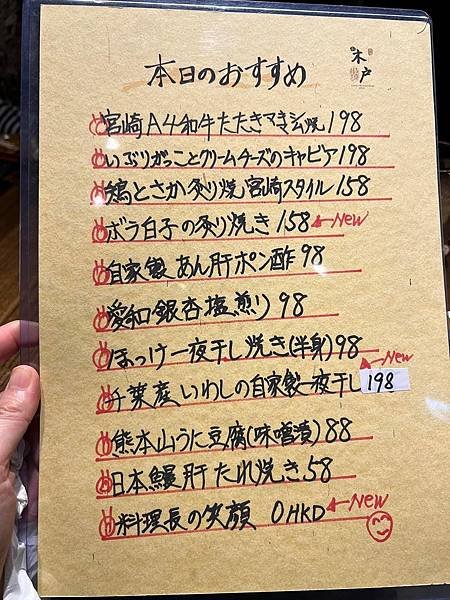 木户
本日のおすすめ
宮崎A4和牛たたきマキシム焼198
いぶりがっことクリームチーズのキャビア198
鶏とさか炙り焼 宮崎スタイル158
ボラ白子の炙り焼き158 New
自家製 あん肝ポン酢98
愛知銀杏塩煎り98
ほっけ一夜干し焼き(半身)98
New
千葉産いわしの自家製一夜干し198
熊本山うに豆腐(味噌漬)88
日本鰻肝たれ焼き58
料理長の笑顔 0HKD New